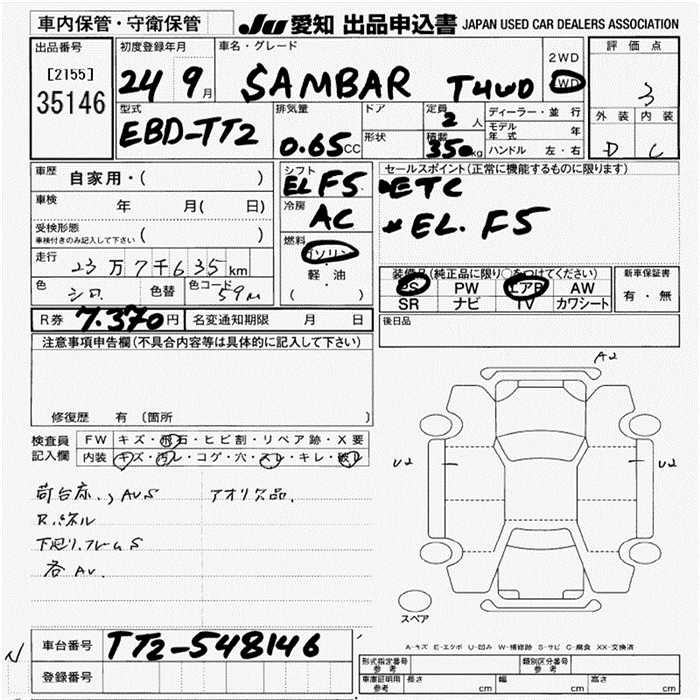 車内保管・守衛保管
JU 愛知 出品申込書 JAPAN USED CAR DEALERS ASSOCIATION
出品番号
[2155]
35146
初度登録年月
24 9月
車名・グレード
SAMBAR T4WD
2WD
4WD
評価点
3
外装 内装
D C
型式
EBD-TT2
排気量
0.65CC
ドア
形状
定員
2人
積載
350kg
ディーラー・並行
モデル年式 年
ハンドル 左・右
車歴
自家用・( )
車検 年 月( 日)
受検形態
車検付きのみ記入して下さい ( )
走行
23万7千635km
色 シロ 色替 色コード 59u
R券 7.370円 名変通知期限 月 日
シフト
EL F5
冷房
AC
燃料
ガソリン
・
軽油
( )
セールスポイント(正常に機能するものに限ります)
ETC
* EL. F5
装備品(純正品に限り○をつけてください)
PS PW エアB AW
SR ナビ TV カワシート
新車保証書
有・無
後日品
注意事項申告欄(不具合内容等は具体的に記入して下さい)
修復歴 有〔箇所
検査員記入欄
FW キズ・飛石・ヒビ割・リペア跡・X要
内装 キズ・汚レ・コゲ・穴・スレ・キレ・破レ
荷台床、AUS アオリ欠品.
R.パネル
下廻り.フレームS
各AU.
A2
U2
U2
スペア
A-キズ E-エクボ U-凹み W-補修跡 S-サビ C-腐食 XX-交換済
N
車台番号 TT2-548146
登録番号
形式指定番号 参考
類別区分番号 参考
車庫証明用 参考 長さ cm 幅 cm 高さ cm